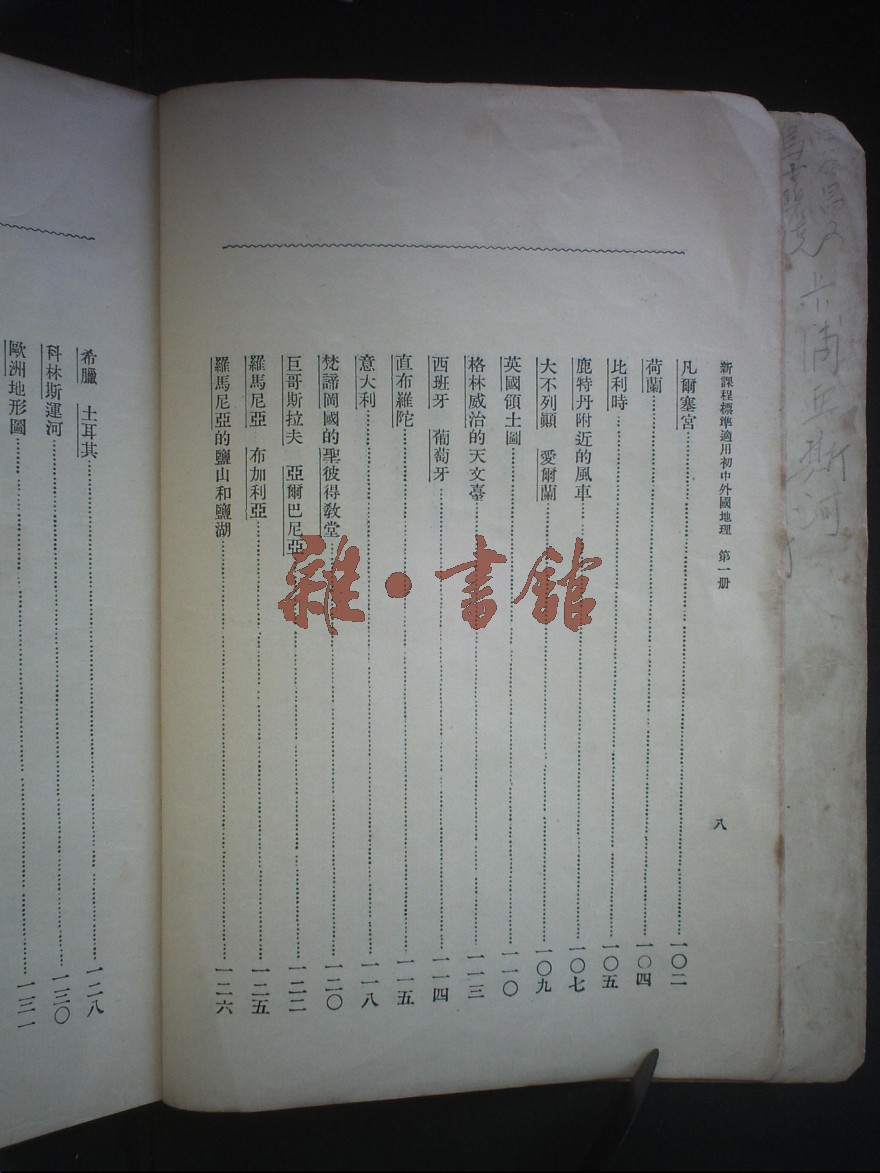 新課程標準適用初中外國地理 第一册
八
凡爾塞宮……一〇二
荷蘭……一〇四
比利時……一〇五
鹿特丹附近的風車……一〇七
大不列顛 愛爾蘭……一〇九
英國領土圖……一一〇
格林威治的天文臺……一一三
西班牙 葡萄牙……一一四
直布羅陀……一一五
意大利……一一八
梵諦岡國的聖彼得教堂……一二〇
巨哥斯拉夫 亞爾巴尼亞……一二二
羅馬尼亞 布加利亞……一二五
羅馬尼亞的鹽山和鹽湖……一二六
希臘 土耳其……一二八
科林斯運河……一三〇
歐洲地形圖……一三一
雜·書館
斯河